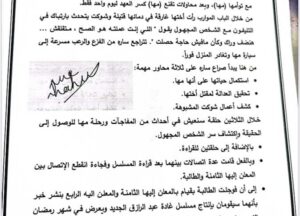 مع توأمها (مها)، وبعد محاولات تقنع (مها) كسر العهد ليوم واحد فقط.
من خلال الباب الموارب رأت أختها غارقة في دمائها قتيلة وشوكت يتحدث بارتباك في
التليفون مع الشخص المجهول بقول " اللي إنت عملته هو الصح ، متقلقش ...
هنضف وراك وكأن مافيش حاجة حصلت ". تتراجع ساره من الفزع والرعب مسرعة إلى
سيارة مها وتغادر المنزل فوراً.
من هنا يبدأ صراع ساره على ثلاثة محاور مهمة:
• استكمال حياتها على أنها مها.
• تحقيق العدالة لمقتل أختها.
• كشف أعمال شوكت المشبوهة.
خلال الثلاثين حلقة سنعيش في أحداث من المفاجآت ورحلة مها للوصول إلى
الحقيقة واكتشاف سر الشخص المجهول.
بالإضافة إلى حلقتين للقراءة.
وبالفعل قامت عدة اتصالات بينهما بعد قراءة المسلسل وفجاءة انقطع الإتصال بين
المعلن إليها الثامنة والطالبة.
إلى أن فوجدت الطالبة بقيام المعلن إليها الثامنة والمعلن اليه الرابع بنشر خبر
بأنهما سيقومان بإنتاج مسلسل غادة عبد الرازق الجديد ويعرض في شهر رمضان